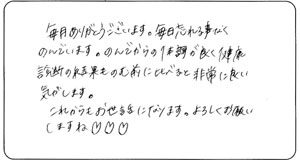 毎月ありがとうございます。毎日忘れる事なく
のんでいます。のんでからの体調が良く健康
診断の結果ものむ前にくらべると非常に良い
気がします。
これからもお世話になります。よろしくお願い
しますね♡♡♡